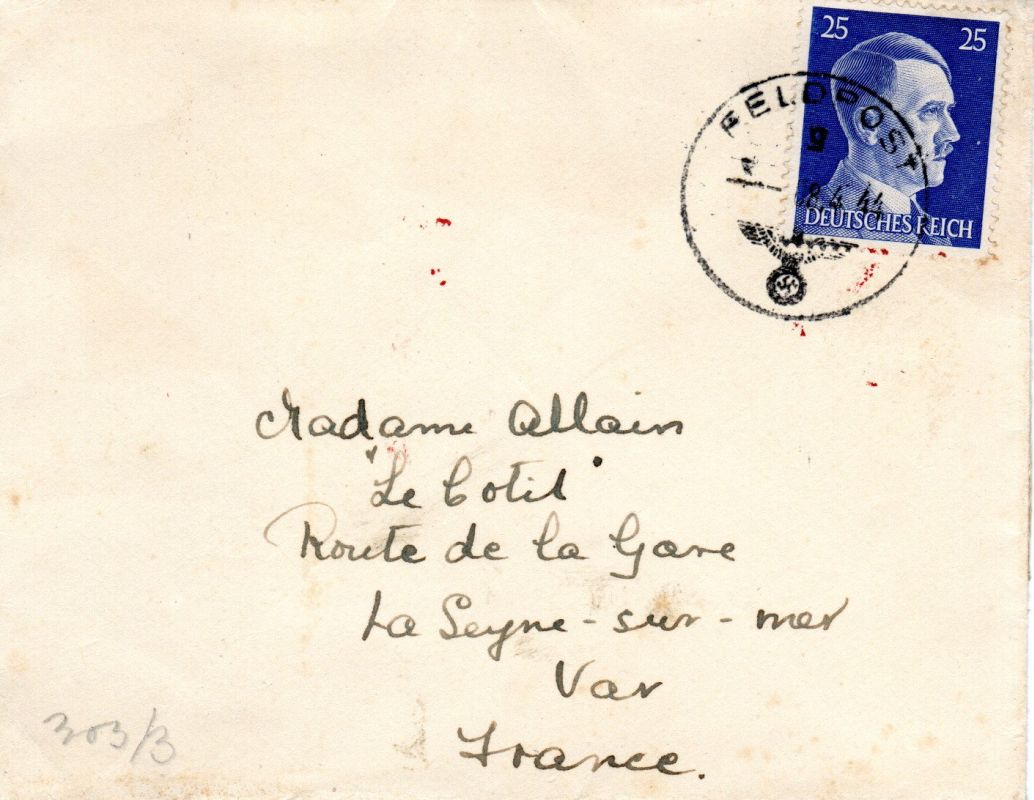 25 25
FELDPOST
g
8.4.44
DEUTSCHES REICH
Madame Allain
"Le Cotil"
Route de la Gare
La Seyne-sur-mer
Var
France.
303/B